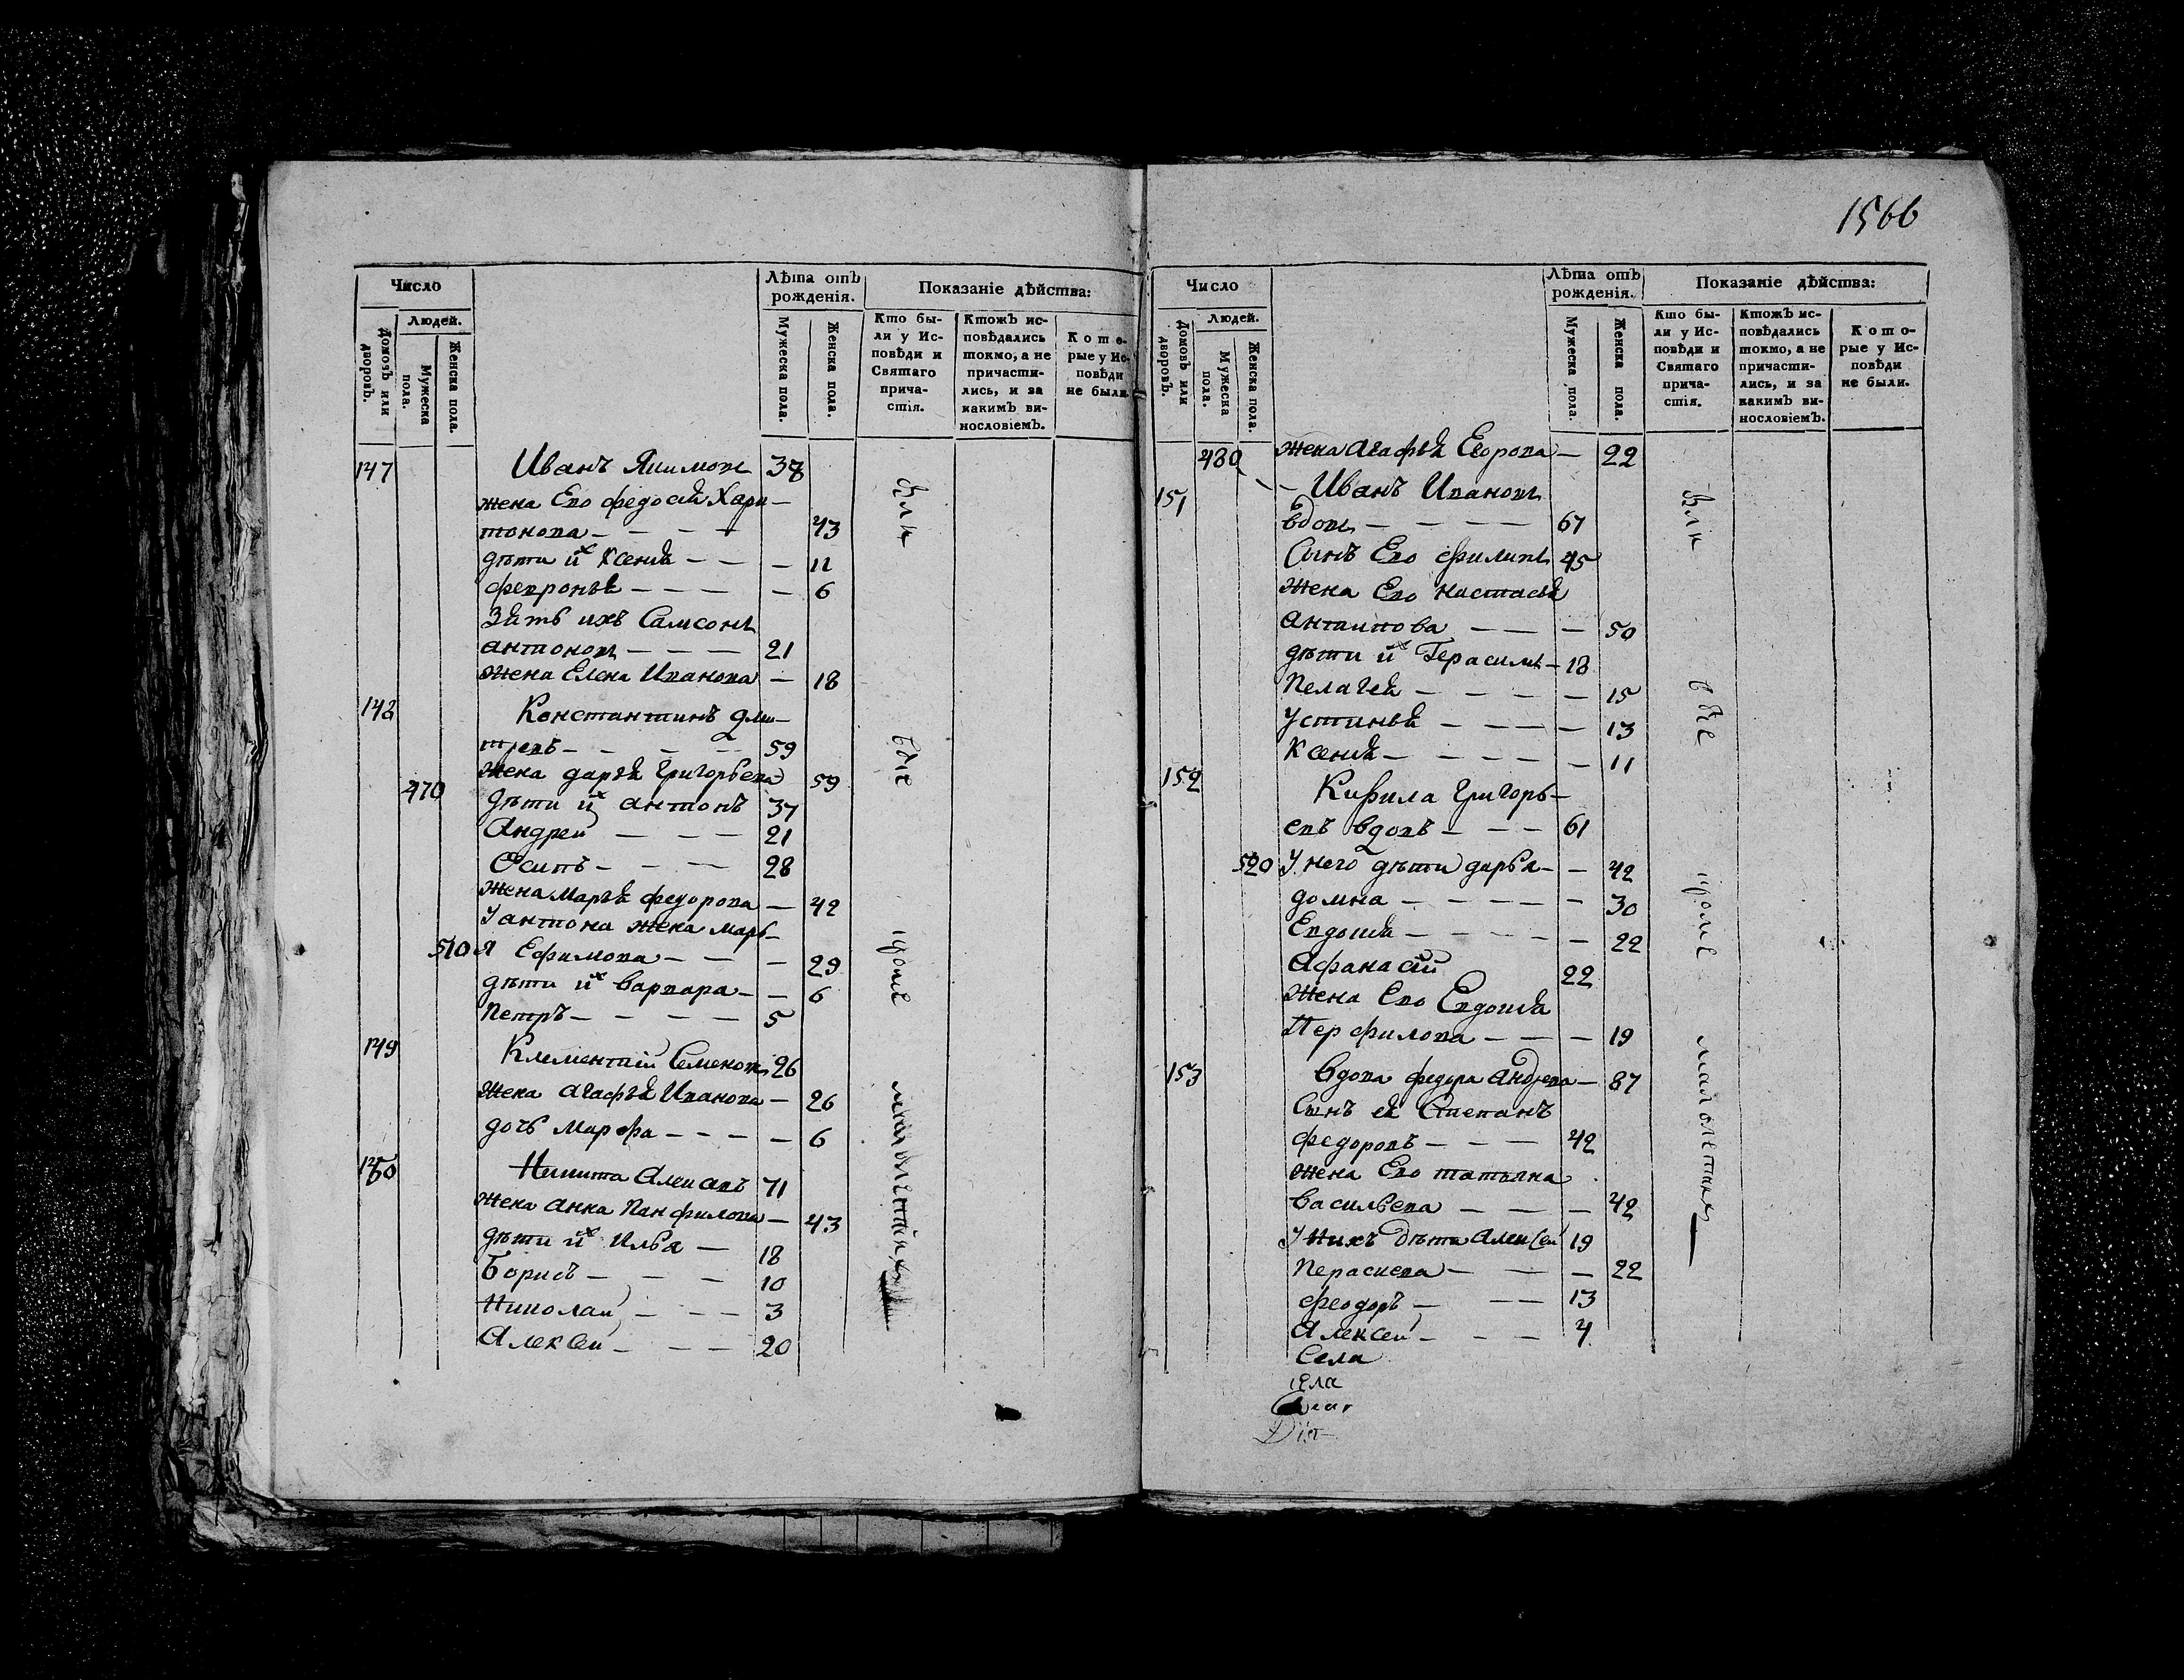 1566
Число
Лѣта отъ рожденія.
Показаніе дѣйства:
Людей.
Домовъ или дворовъ.
Мужеска пола.
Женска пола.
Мужеска пола.
Женска пола.
Кто были у Исповѣди и Святаго причастія.
Ктожъ исповѣдались токмо, а не причастились, и за какимъ винословіемъ.
Которые у Исповѣди не были.
147 Иванъ Якимовъ 38
жена Его федосія Хари—
тонова — — — 43
дѣти их Ксенія — — — 11
февронья — — — — 6
Зять ихъ Самсонъ
антоновъ — — — 21
жена Елена Иванова — 18
148 Константинъ дми—
тревъ — — — — 59
жена дарья Григорьева 59
470 дѣти их антонъ 37
Андреи — — — 21
Осипъ — — — 28
жена Марья федорова — 42
У антона жена марь—
510 я Ефимова — — — 29
дѣти их варвара — — 6
Петръ — — — — 5
149 Клементіи Семеновъ 26
жена агафья Иванова — 26
дочь Марфа — — — — 6
150 Никита Алексаевъ 71
жена анна Панфилова — 43
дѣти их Илья — 18
Борисъ — — — 10
Николаи — — — 3
Алексеи — — — 20
Всѣ
были
кроме
малолетныхъ
Число
Лѣта отъ рожденія.
Показаніе дѣйства:
Людей.
Домовъ или дворовъ.
Мужеска пола.
Женска пола.
Мужеска пола.
Женска пола.
Кто были у Исповѣди и Святаго причастія.
Ктожъ исповѣдались токмо, а не причастились, и за какимъ винословіемъ.
Которые у Исповѣди не были.
жена агафья Егорова — 22
480 Иванъ Ивановъ
151 вдовъ — — — — 67
Сынъ Его филипъ 45
жена Его настасья
антипова — — — 50
дѣти их Герасимъ — 18
Пелагея — — — — 15
Устинья — — — — 13
Ксенія — — — — — 11
152 Кирила Григорь—
евъ вдовъ — — — 61
520 У него дѣти дарья — — 42
домна — — — — — 30
Евдокия — — — — — 22
Афанасіи 22
жена Его Евдокия
Перфилова — — — 19
153 Вдова федора Андрева — 87
Сынъ ея Степанъ
федоровъ — — — 42
жена Его татьяна
васильева — — — 42
У нихъ дѣти Алексеи 19
Параскева — — — 22
феодоръ — — — 13
Алексеи — — — 4
Села
кроме
малолетныхъ